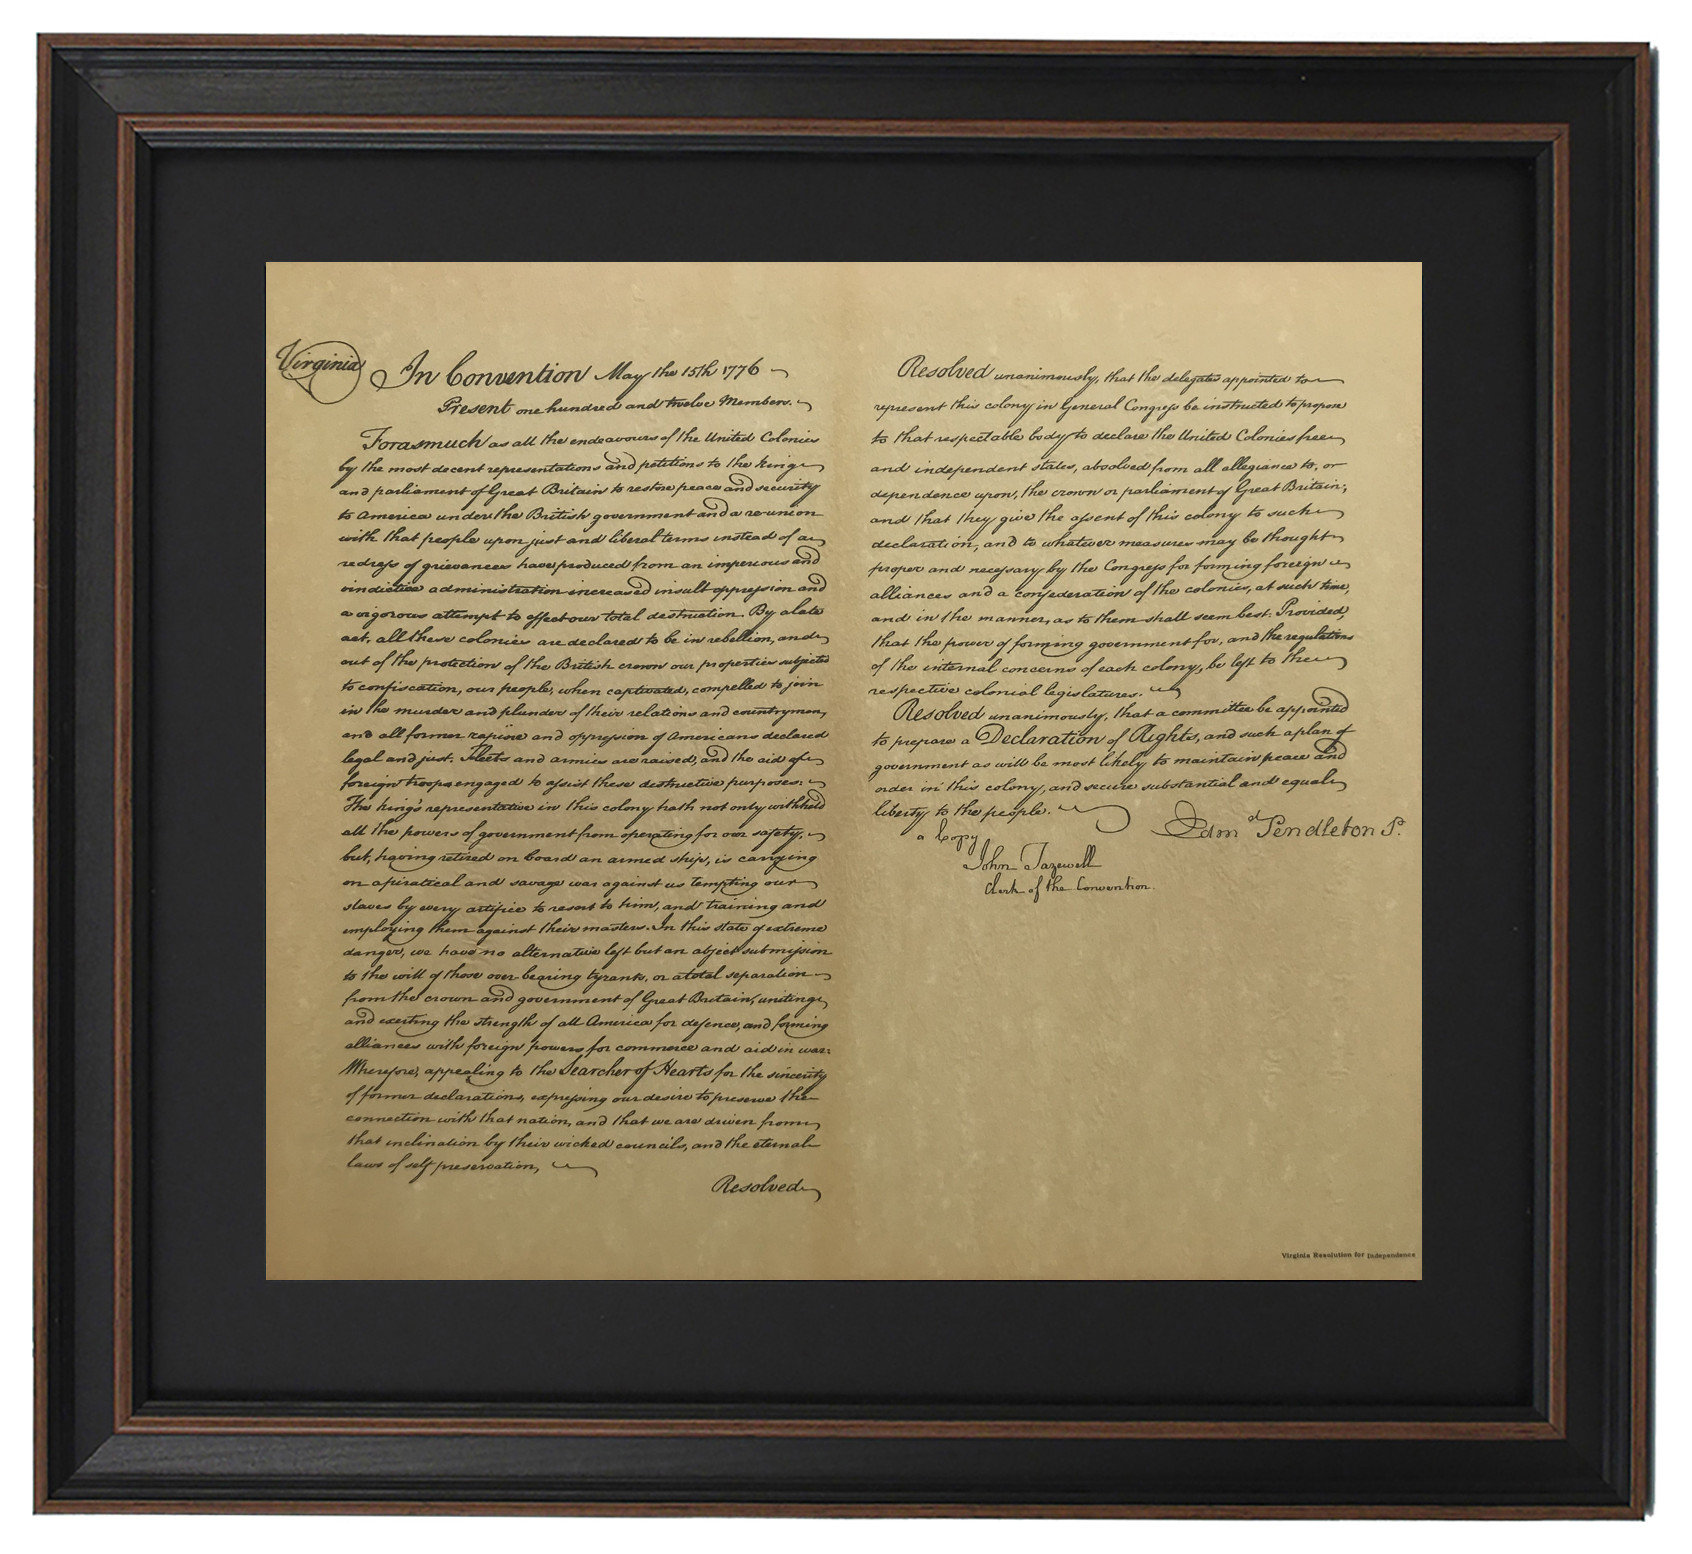 Virginia
In Convention May the 15th 1776
Present one hundred and twelve Members.
Forasmuch as all the endeavours of the United Colonies
by the most decent representations and petitions to the king
and parliament of Great Britain to restore peace and security
to America under the British government and a re-union
with that people upon just and liberal terms instead of a
redress of grievances have produced from an imperious and
vindictive administration increased insult oppression and
a vigorous attempt to effect our total destruction. By a late
act, all these colonies are declared to be in rebellion, and
out of the protection of the British crown our properties subjected
to confiscation, our people, when captivated, compelled to join
in the murder and plunder of their relations and countrymen,
and all former rapine and oppression of Americans declared
legal and just. Fleets and armies are raised, and the aid of
foreign troops engaged to assist these destructive purposes:
The king's representative in this colony hath not only withheld
all the powers of government from operating for our safety,
but, having retired on board an armed ship, is carrying
on a piratical and savage war against us tempting our
slaves by every artifice to resort to him, and training and
employing them against their masters. In this state of extreme
danger, we have no alternative left but an abject submission
to the will of those over-bearing tyrants, or a total separation
from the crown and government of Great Britain, uniting
and exerting the strength of all America for defence, and forming
alliances with foreign powers for commerce and aid in war:
Wherefore, appealing to the Searcher of Hearts for the sincerity
of former declarations, expressing our desire to preserve the
connection with that nation, and that we are driven from
that inclination by their wicked councils, and the eternal
laws of self preservation,
Resolved
Resolved unanimously, that the delegates appointed to
represent this colony in General Congress be instructed to propose
to that respectable body to declare the United Colonies free
and independent states, absolved from all allegiance to, or
dependence upon, the crown or parliament of Great Britain;
and that they give the assent of this colony to such
declaration, and to whatever measures may be thought
proper and necessary by the Congress for forming foreign
alliances and a confederation of the colonies, at such time,
and in the manner, as to them shall seem best. Provided,
that the power of forming government for, and the regulations
of the internal concerns of each colony, be left to the
respective colonial legislatures.
Resolved unanimously, that a committee be appointed
to prepare a Declaration of Rights, and such a plan of
government as will be most likely to maintain peace and
order in this colony, and secure substantial and equal
liberty to the people.
Edmd Pendleton P.
a Copy
John Tazewell
Clerk of the Convention.
Virginia Resolution for Independence